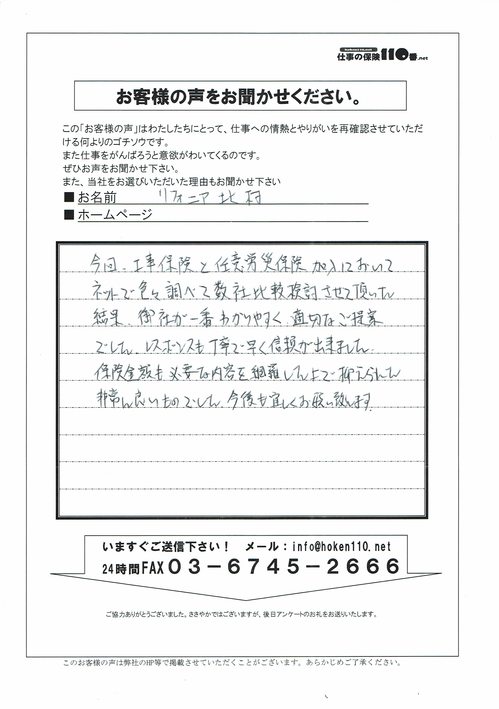 仕事の保険110番.net
お客様の声をお聞かせください。
この「お客様の声」はわたしたちにとって、仕事への情熱とやりがいを再確認させていただ
ける何よりのゴチソウです。
また仕事をがんばろうと意欲がわいてくるのです。
ぜひお声をお聞かせ下さい。
また、当社をお選びいただいた理由もお聞かせ下さい
■お名前 リフォニア 北村
■ホームページ
今回、工事保険と任意労災保険加入において
ネットで色々調べて数社比較検討させて頂いた
結果、御社が一番わかりやすく、適切なご提案
でした。レスポンスも丁寧で早く信頼が出来ました。
保険金額も必要な内容を網羅した上で抑えられた
非常に良いものでした。今後も宜しくお願い致します。
いますぐご送信下さい！ メール：info@hoken110.net
24時間FAX03-6745-2666
ご協力ありがとうございました。ささやかではございますが、後日アンケートのお礼をお送りいたします。
このお客様の声は弊社のHP等で掲載させていただくことがございます。あらかじめご了承ください。